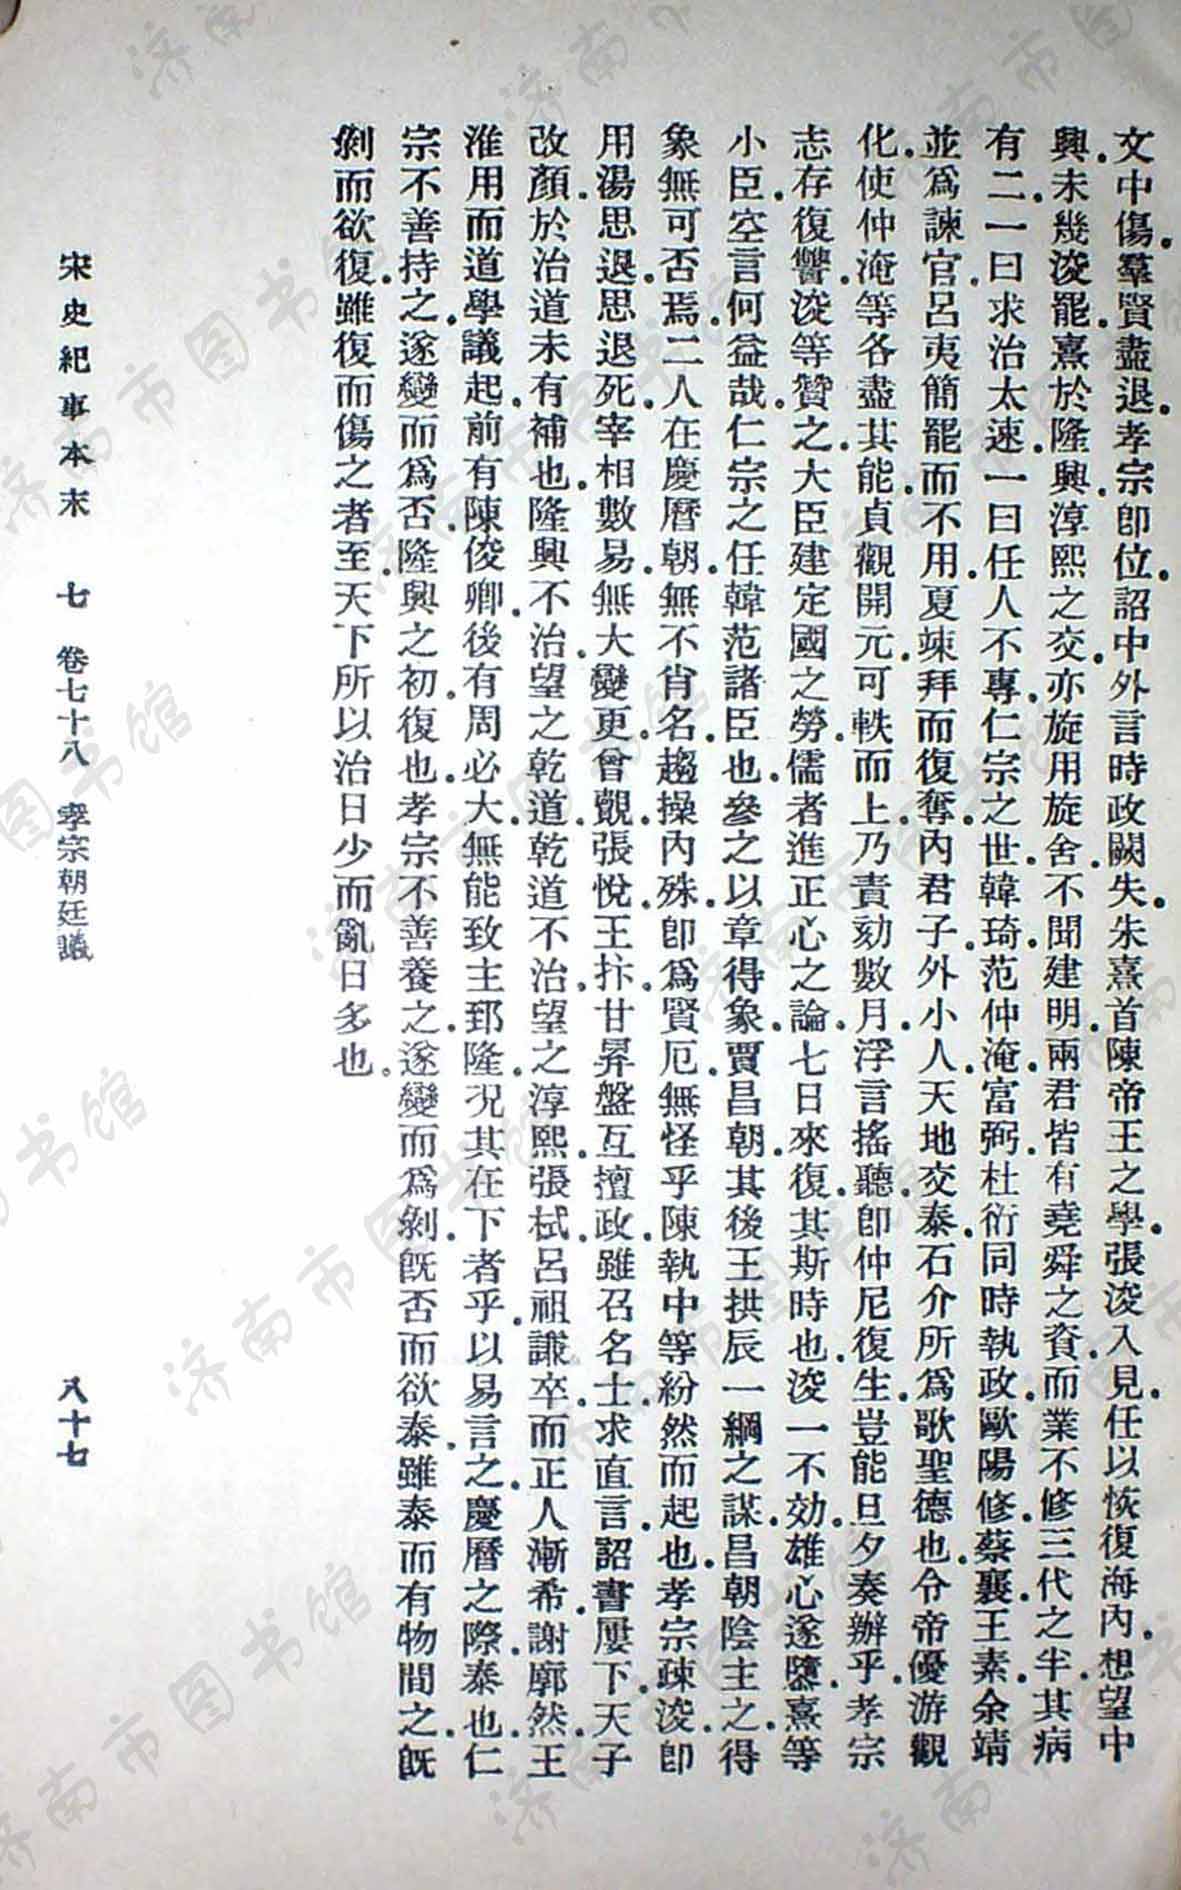 文中傷.羣賢盡退.孝宗卽位.詔中外言時政闕失.朱熹首陳帝王之學.張浚入見.任以恢復海內.想望中
興.未幾浚罷.熹於隆興.淳熙之交.亦旋用旋舍.不聞建明.兩君皆有堯舜之資.而業不修三代之半.其病
有二.一曰求治太速.一曰任人不專.仁宗之世.韓琦.范仲淹.富弼.杜衍同時執政.歐陽修.蔡襄.王素.余靖
並爲諫官.呂夷簡罷而不用.夏竦拜而復奪.內君子.外小人.天地交泰.石介所爲歌聖德也.令帝優游觀
化.使仲淹等各盡其能.貞觀開元.可軼而上.乃責効數月.浮言搖聽.卽仲尼復生.豈能旦夕奏辦乎.孝宗
志存復讐.浚等贊之.大臣建定國之勞.儒者進正心之論.七日來復.其斯時也.浚一不効.雄心遂隳.熹等
小臣.空言何益哉.仁宗之任韓范諸臣也.參之以章得象.賈昌朝.其後王拱辰一網之謀.昌朝陰主之.得
象無可否焉.二人在慶曆朝.無不肖名.趨操內殊.卽爲賢厄.無怪乎陳執中等紛然而起也.孝宗疎浚.卽
用湯思退.思退死.宰相數易.無大變更.曾覿.張悅.王抃.甘昪盤互擅政.雖召名士.求直言.詔書屢下.天子
改顏.於治道未有補也.隆興不治.望之乾道.乾道不治.望之淳熙.張栻.呂祖謙卒.而正人漸希.謝廓然.王
淮用而道學議起.前有陳俊卿.後有周必大.無能致主郅隆.況其在下者乎.以易言之.慶曆之際.泰也.仁
宗不善持之.遂變而爲否.隆興之初.復也.孝宗不善養之.遂變而爲剝.旣否而欲泰.雖泰而有物間之.旣
剝而欲復.雖復而傷之者至.天下所以治日少而亂日多也.
宋史紀事本末 七 卷七十八 孝宗朝廷議 八十七
济南市图书馆